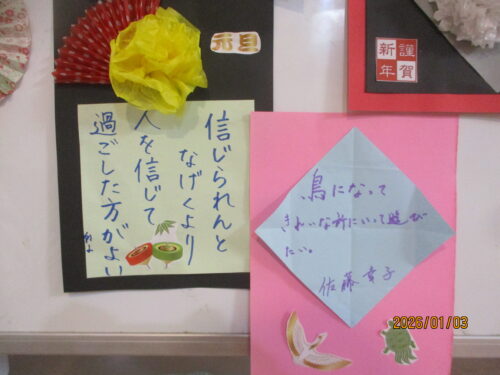 元旦
謹賀
新年
信じられんと
なげくより
人を信じて
過ごした方がよい
鳥になって
きれいな所にいって遊び
たい。
佐藤幸子
2026/01/03